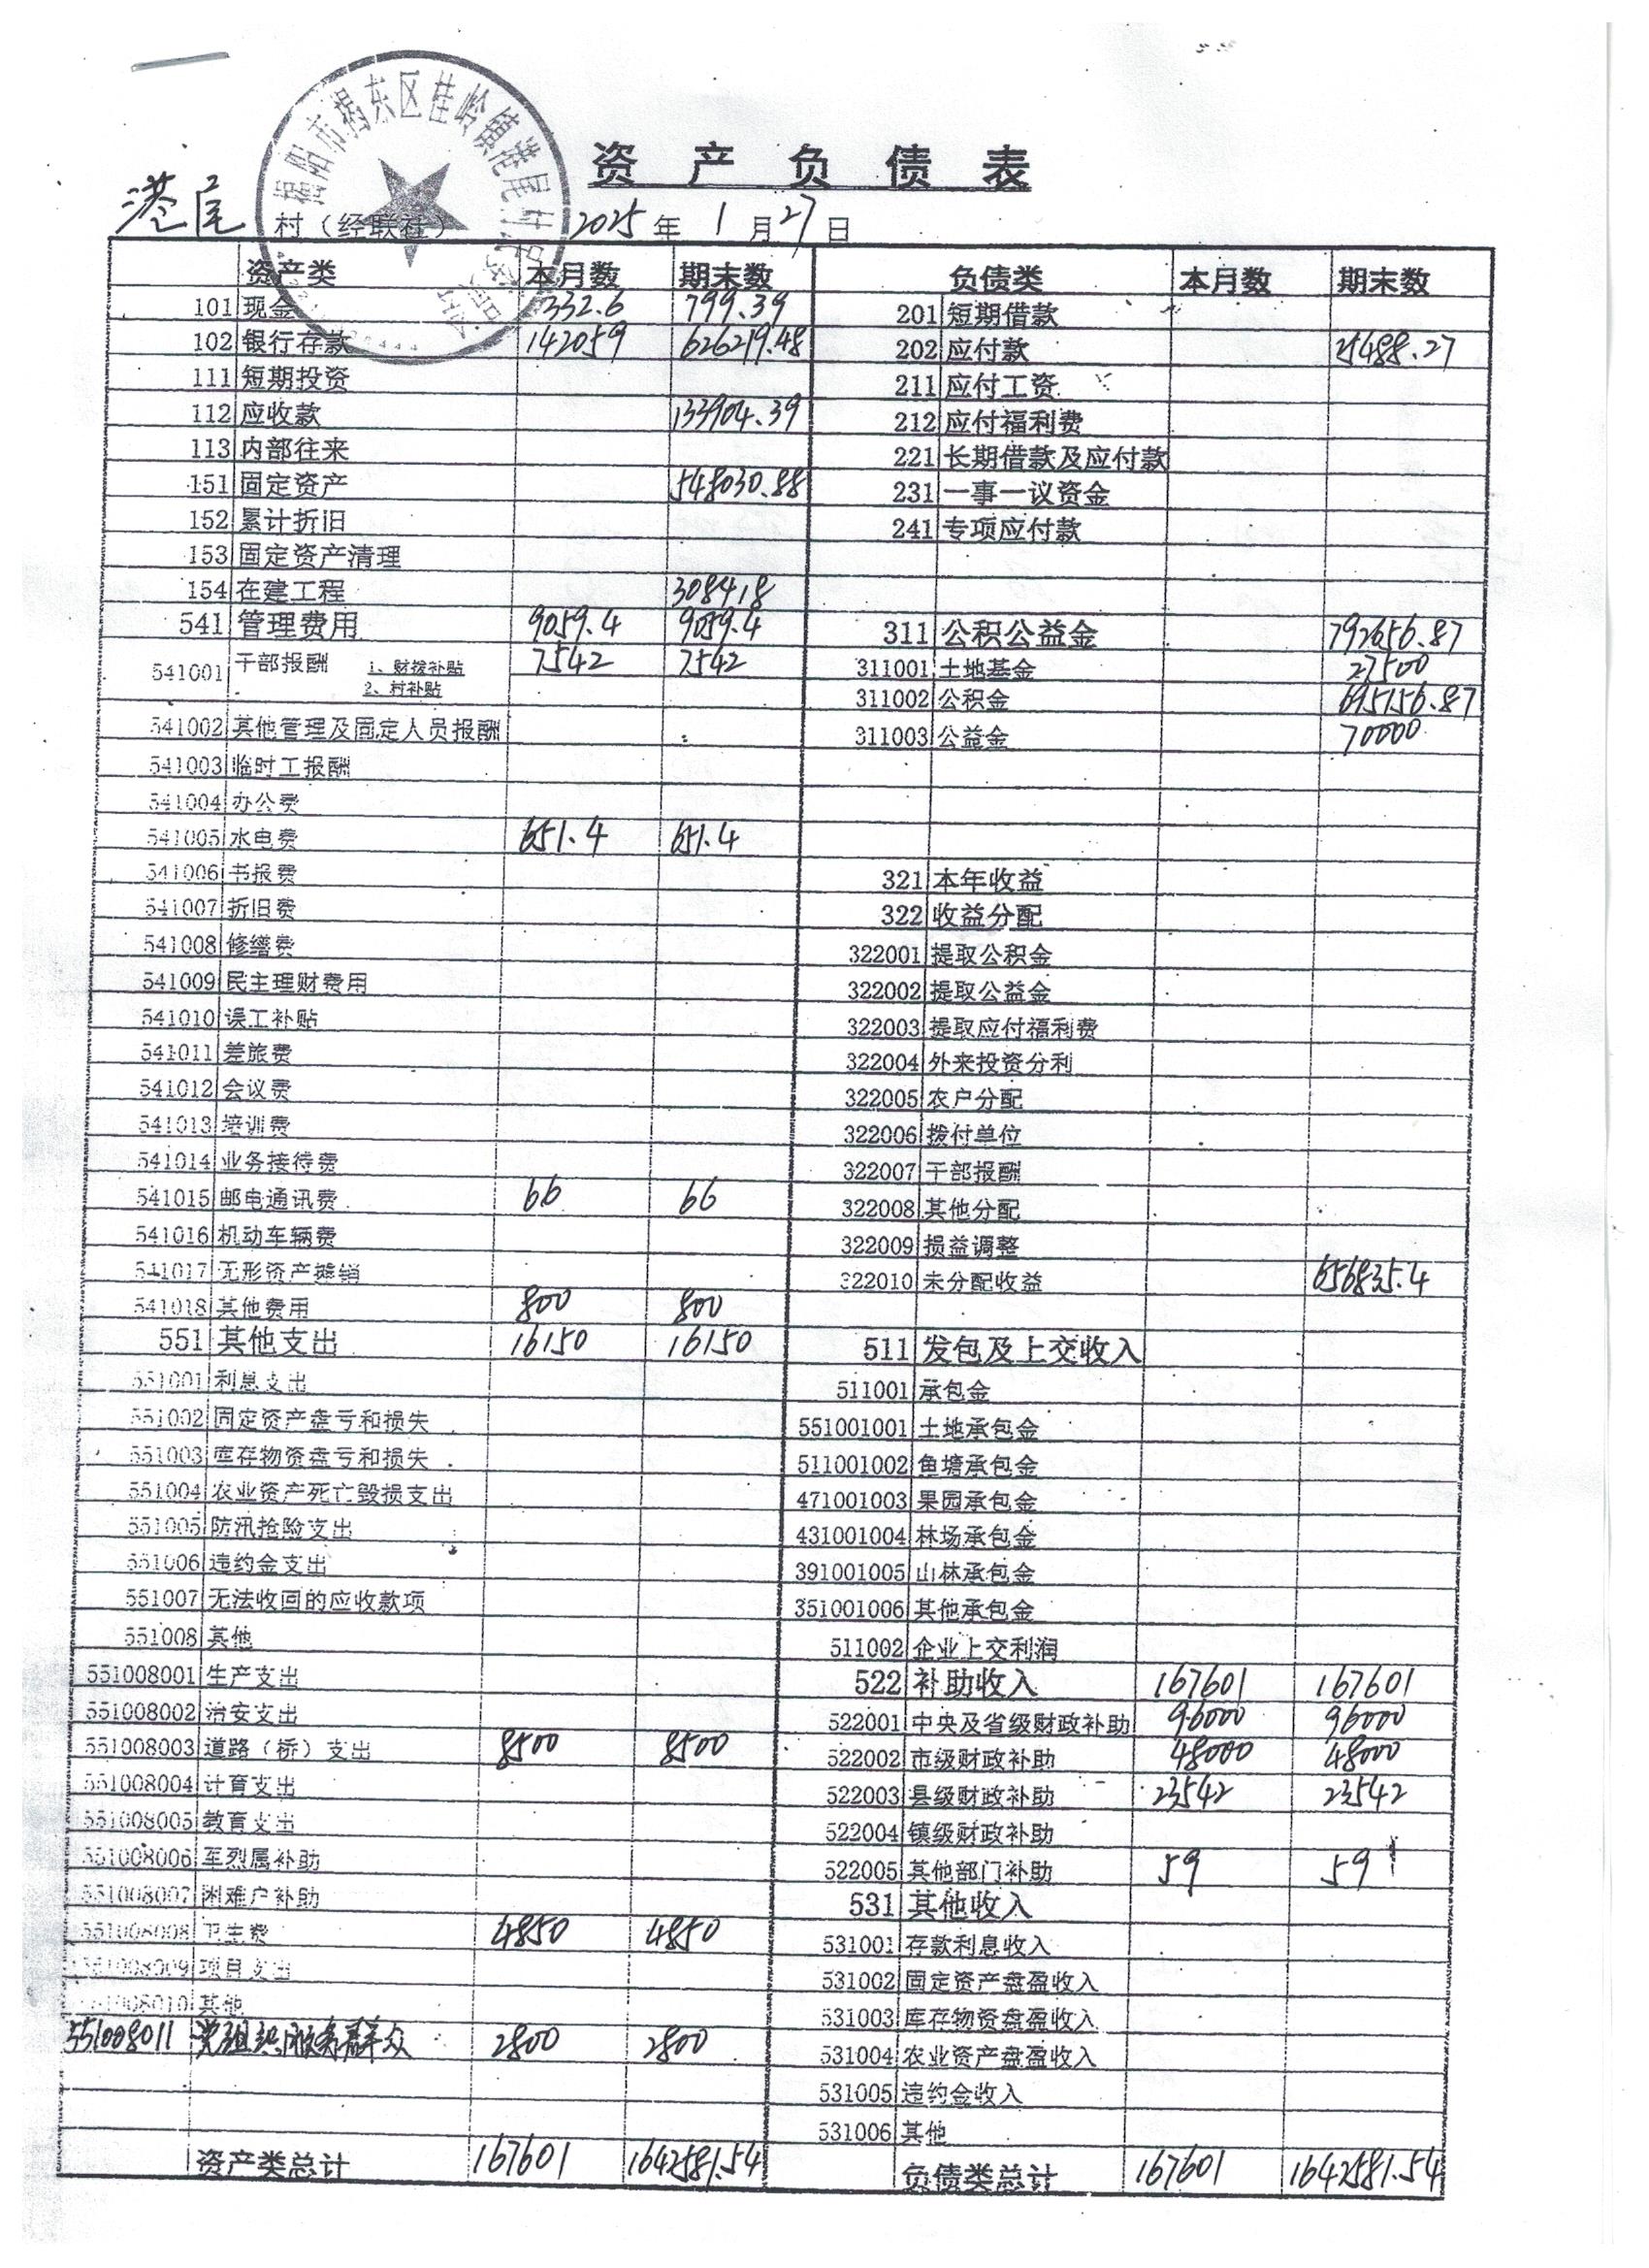 揭阳市揭东区桂岭镇港尾村民委员会
资产负债表
港尾 村（经联社） 2025 年 1 月 27 日
资产类 本月数 期末数 负债类 本月数 期末数
101 现金 332.6 799.39 201 短期借款
102 银行存款 142059 626219.48 202 应付款 25488.27
111 短期投资 211 应付工资
112 应收款 133904.39 212 应付福利费
113 内部往来 221 长期借款及应付款
151 固定资产 548030.88 231 一事一议资金
152 累计折旧 241 专项应付款
153 固定资产清理
154 在建工程 308418
541 管理费用 9059.4 9059.4 311 公积公益金 792656.87
541001 干部报酬 1、财拨补贴 7542 7542 311001 土地基金 27500
2、村补贴 311002 公积金 695156.87
541002 其他管理及固定人员报酬 311003 公益金 70000
541003 临时工报酬
541004 办公费
541005 水电费 651.4 651.4
541006 书报费 321 本年收益
541007 折旧费 322 收益分配
541008 修缮费 322001 提取公积金
541009 民主理财费用 322002 提取公益金
541010 误工补贴 322003 提取应付福利费
541011 差旅费 322004 外来投资分利
541012 会议费 322005 农户分配
541013 培训费 322006 拨付单位
541014 业务接待费 322007 干部报酬
541015 邮电通讯费 66 66 322008 其他分配
541016 机动车辆费 322009 损益调整
541017 无形资产摊销 322010 未分配收益 656835.4
541018 其他费用 800 800
551 其他支出 16150 16150 511 发包及上交收入
551001 利息支出 511001 承包金
551002 固定资产盘亏和损失 551001001 土地承包金
551003 库存物资盘亏和损失 511001002 鱼塘承包金
551004 农业资产死亡毁损支出 471001003 果园承包金
551005 防汛抢险支出 431001004 林场承包金
551006 违约金支出 391001005 山林承包金
551007 无法收回的应收款项 351001006 其他承包金
551008 其他 511002 企业上交利润
551008001 生产支出 522 补助收入 167601 167601
551008002 治安支出 522001 中央及省级财政补助 96000 96000
551008003 道路（桥）支出 8500 8500 522002 市级财政补助 48000 48000
551008004 计育支出 522003 县级财政补助 23542 23542
551008005 教育支出 522004 镇级财政补助
551008006 军烈属补助 522005 其他部门补助 59 59
551008007 困难户补助 531 其他收入
551008008 卫生费 4850 4850 531001 存款利息收入
551008009 项目支出 531002 固定资产盘盈收入
551008010 其他 531003 库存物资盘盈收入
551008011 党组织服务群众 2800 2800 531004 农业资产盘盈收入
531005 违约金收入
531006 其他
资产类总计 167601 1642581.54 负债类总计 167601 1642581.54